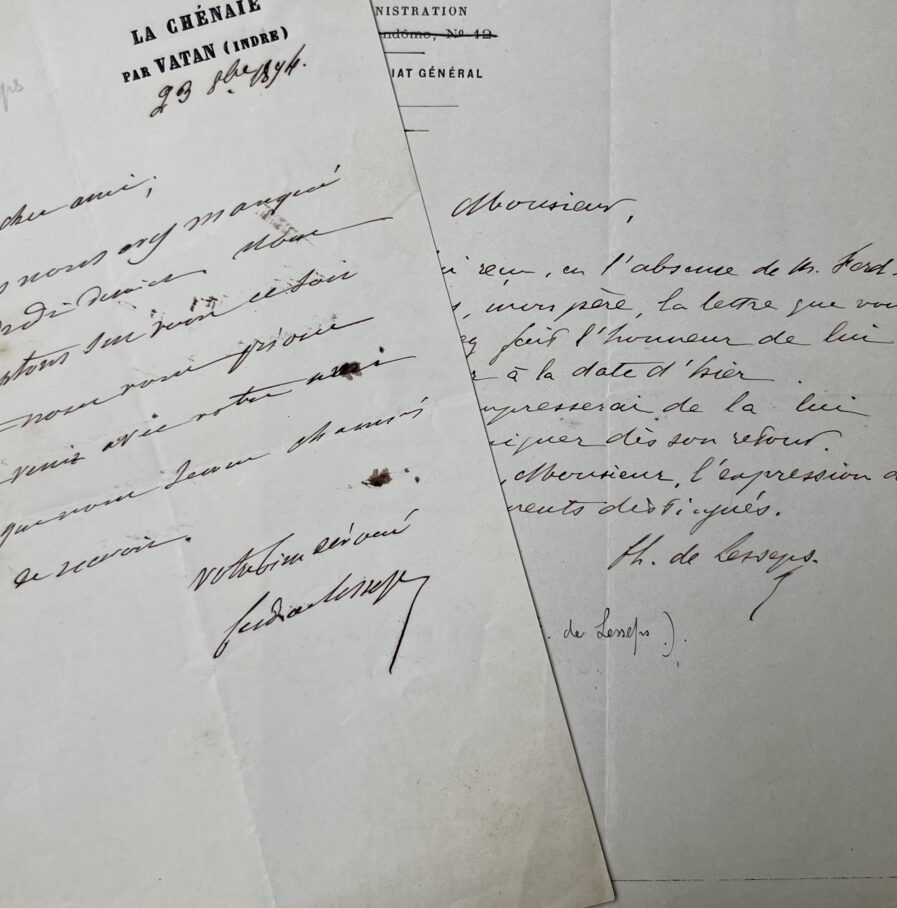 LA CHÉNAIE
PAR VATAN (INDRE)
23 8bre 1874.
cher ami;
nous avez manqué
dernier. Nous
comptons sur vous ce soir
nous vous prions
venir avec votre ami
que nous serons charmés
de recevoir.
votre bien dévoué
Ferd. de Lesseps
NISTRATION
ndôme, No 12
IAT GÉNÉRAL
Monsieur,
i reçu, en l'absence de M. Ferd.
s, mon père, la lettre que vou
ez fait l'honneur de lui
r à la date d'hier.
mpresserai de la lui
iquer dès son retour.
, Monsieur, l'expression d
ments distingués.
Ch. de Lesseps.
. de Lesseps).
ps